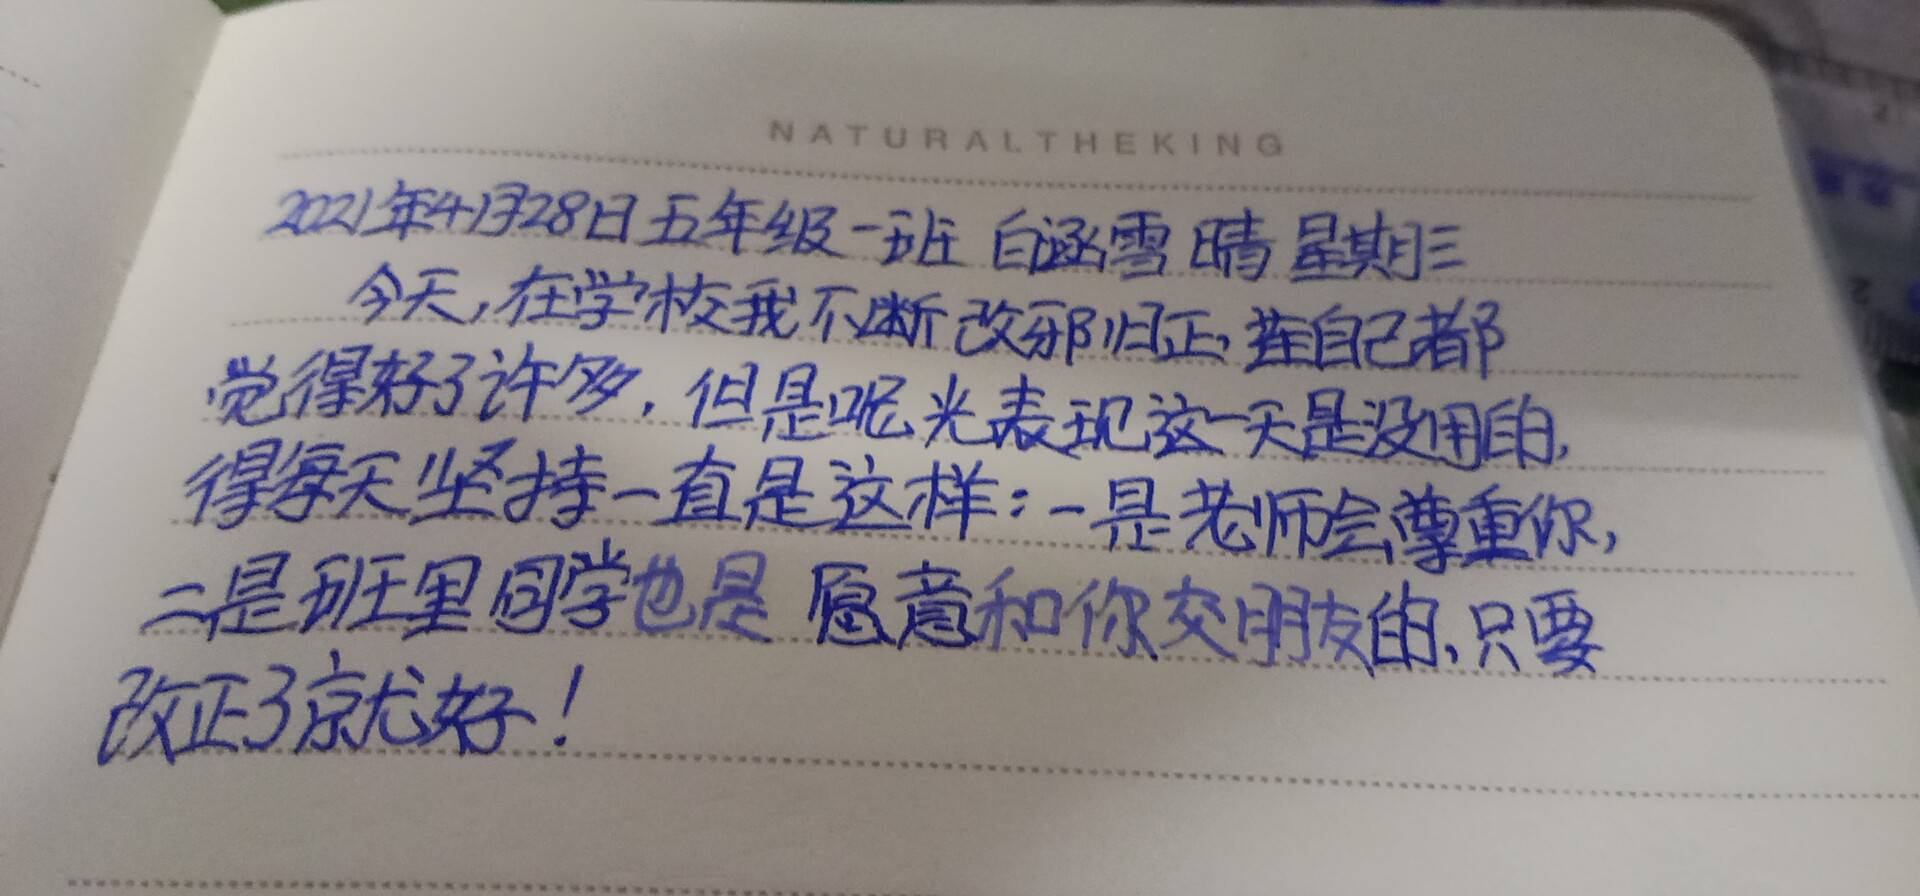 NATURALTHEKING
2021年4月28日五年级一班 白涵雪 晴 星期三
今天,在学校我不断改邪归正,连自己都
觉得好了许多,但是呢光表现这一天是没用的,
得每天坚持一直是这样:一是老师会尊重你,
二是班里同学也是愿意和你交朋友的,只要
改正了就好!